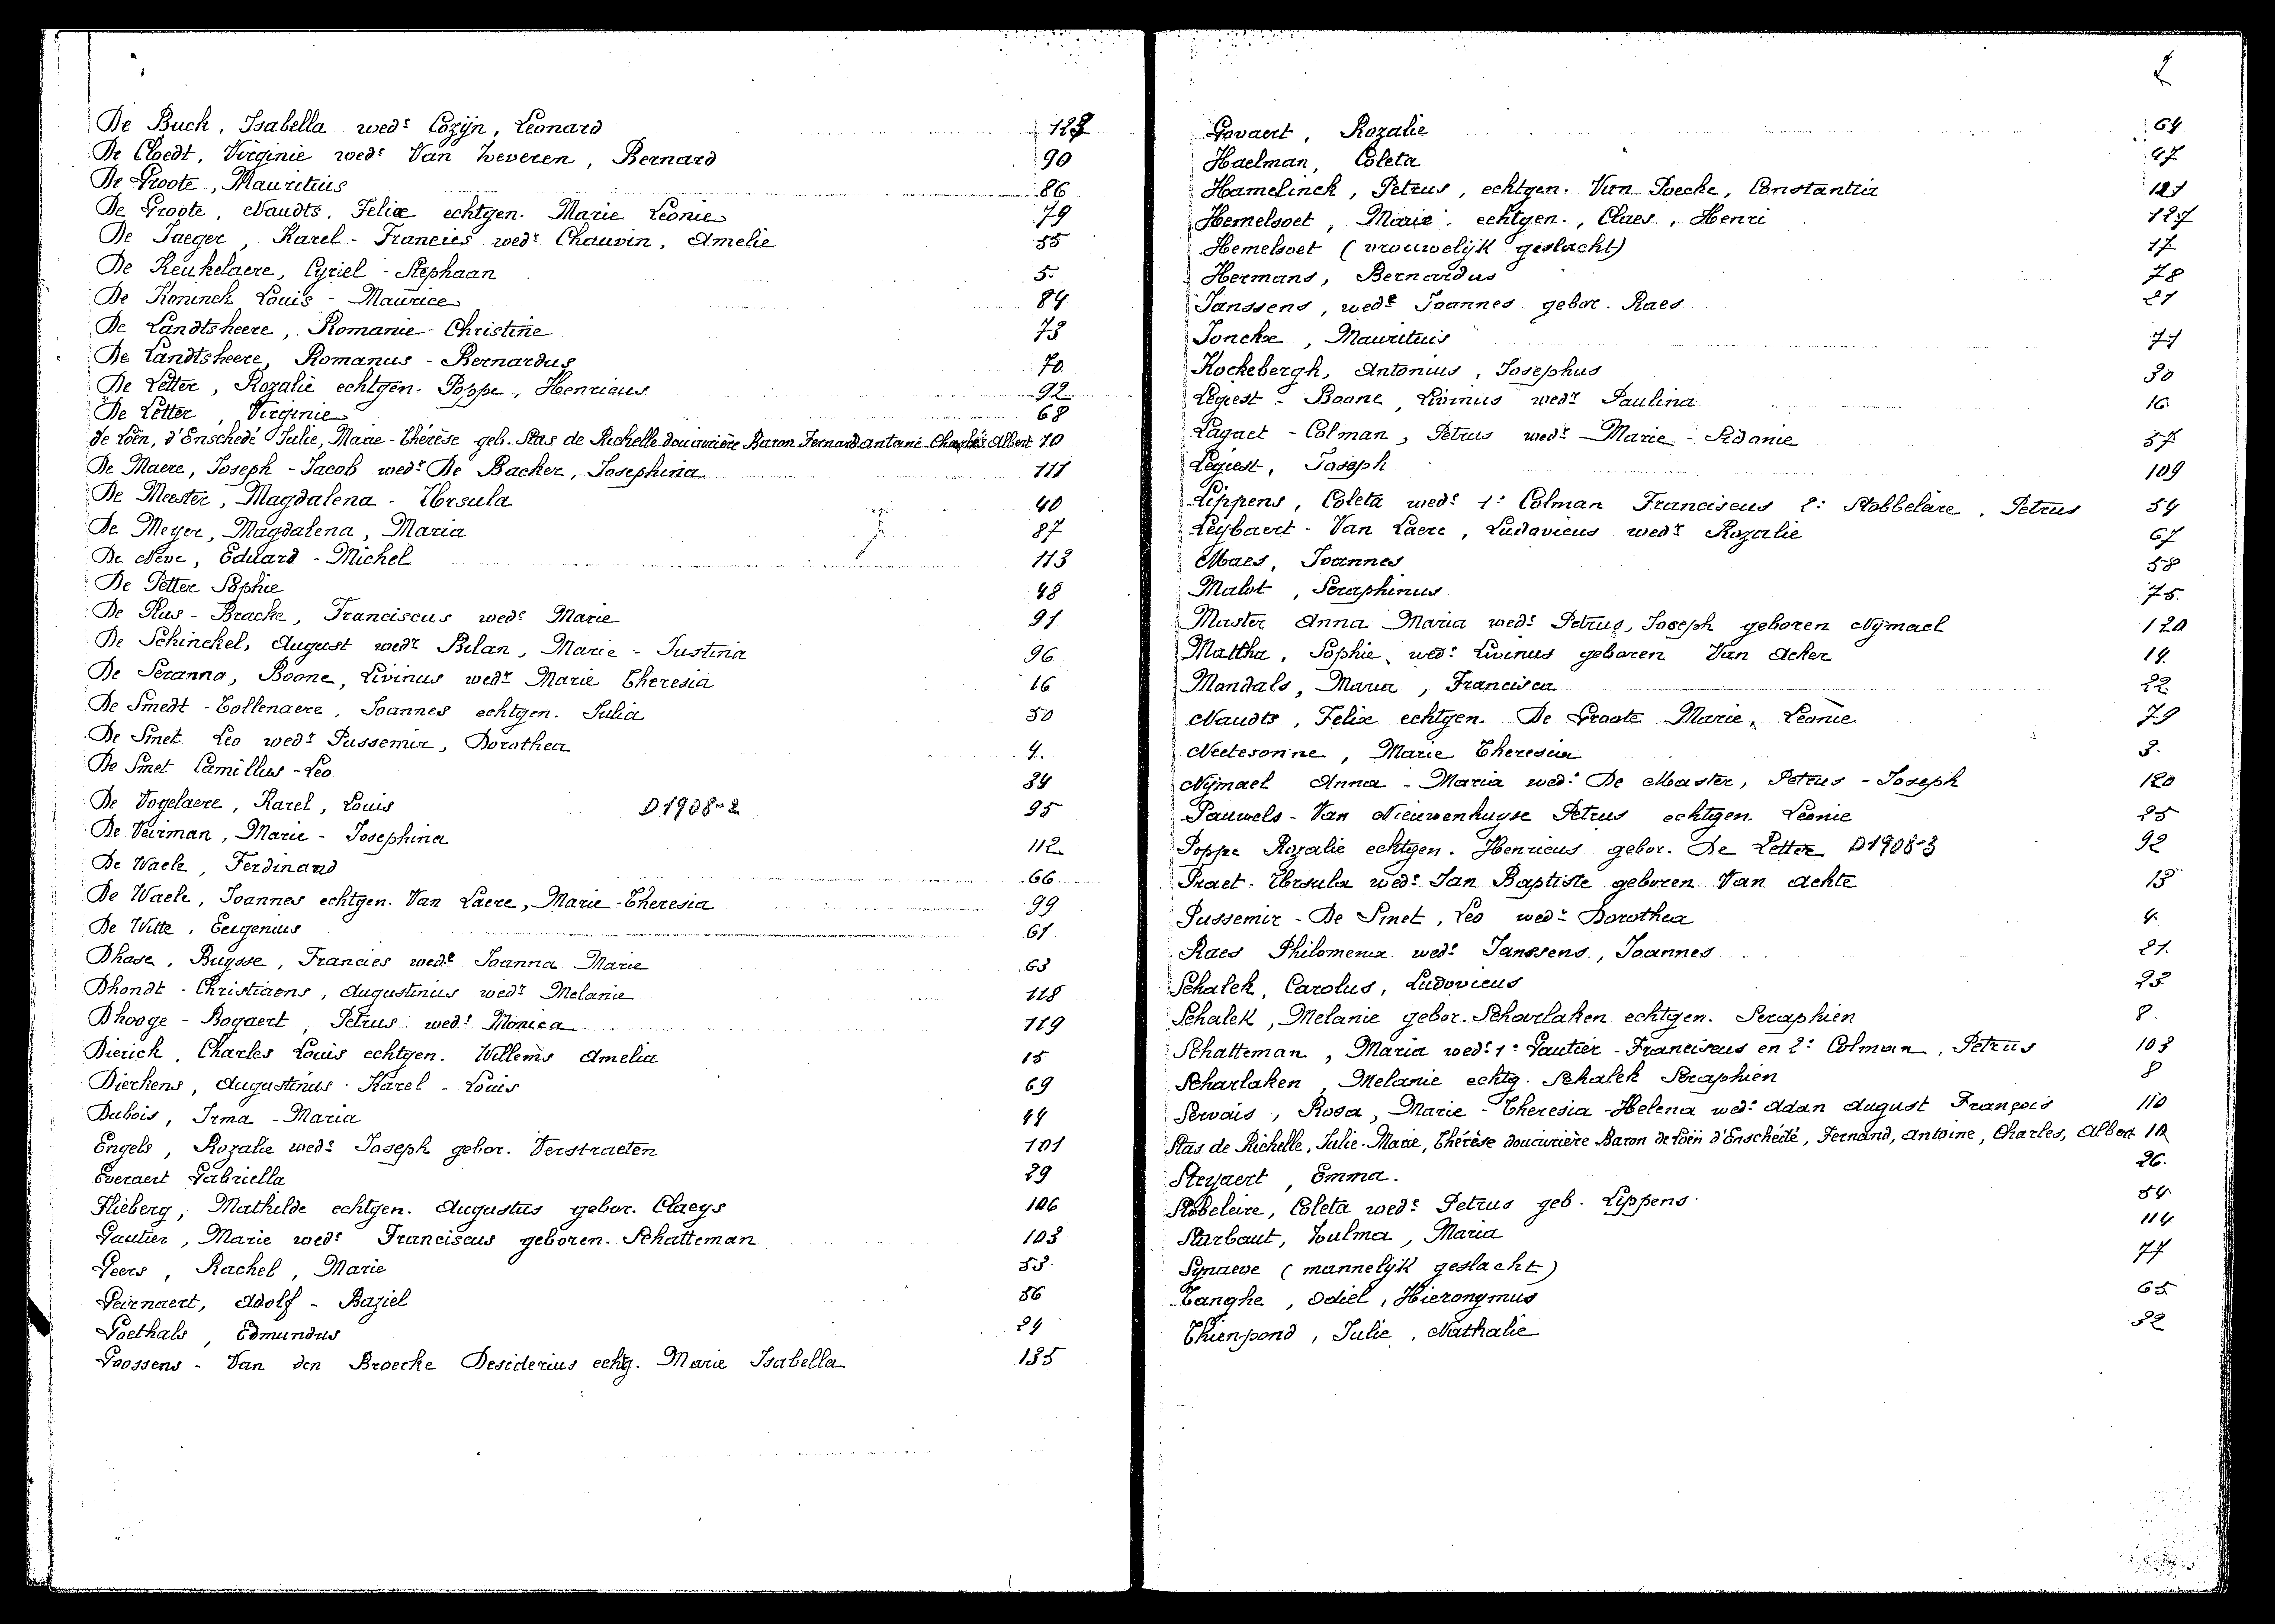 De Buck, Isabella wede Cozijn, Leonard 123
De Cloedt, Virginie wede Van Zeveren, Bernard 90
De Groote, Mauritius 86
De Groote, Naudts, Felix echtgen. Marie Leonie 79
De Jaeger, Karel - Francies wedr Chauvin, Amelie 55
De Keukelaere, Cyriel - Stephaan 5
De Koninck Louis - Maurice 84
De Landtsheere, Romanie - Christine 73
De Landtsheere, Romanus - Bernardus 70
De Letter, Rozalie echtgen. Poppe, Henricus 92
De Letter, Virginie 68
de Loën, d'Enschedé Julie, Marie-Thérèse geb. Stas de Richelle douairière Baron Fernand Antoine Charles Albert 10
De Maere, Joseph - Jacob wedr De Backer, Josephina 111
De Meester, Magdalena - Ursula 40
De Meyer, Magdalena, Maria 87
De Neve, Eduard - Michel 113
De Petter Sophie 48
De Plus - Bracke, Franciscus wede Marie 91
De Schinckel, August wedr Bilan, Marie - Justina 96
De Seranno, Boone, Livinus wedr Marie Theresia 16
De Smedt - Tollenaere, Joannes echtgen. Julia 50
De Smet Leo wedr Pussemir, Dorothea 4.
De Smet Camillus - Leo 34
De Vogelaere, Karel, Louis D1908-2 95
De Veirman, Marie - Josephina 112
De Waele, Ferdinand 66
De Waele, Joannes echtgen. Van Laere, Marie - Theresia 99
De Witte, Eeugenius 61
Dhase, Buysse, Francies wede Joanna Marie 63
Dhondt - Christiaens, Augustinius wedr Melanie 118
Dhooge - Bogaert, Petrus wedr Monica 119
Dierick, Charles Louis echtgen. Willems Amelia 15
Dierkens, Augustinus Karel - Louis 69
Dubois, Irma - Maria 44
Engels, Rozalie wede Joseph gebor. Verstraeten 101
Everaert Gabriella 29
Flieberg, Mathilde echtgen. Augustus gebor. Claeys 106
Gautier, Marie wede Franciscus geboren. Schatteman 103
Geers, Rachel, Marie 53
Geirnaert, Adolf - Baziel 56
Goethals, Edmundus 24
Goossens - Van den Broecke Desiderius echtg. Marie Isabella 135
Govaert, Rozalie 64
Haelman, Coleta 47
Hamelinck, Petrus, echtgen. Van Poecke, Constantia 121
Hemelsoet, Marie - echtgen., Claes, Henri 127
Hemelsoet (vrouwelijk geslacht) 17
Hermans, Bernardus 78
Janssens, wede Joannes gebor. Raes 21
Jonckx, Mauritius 71
Kockebergh, Antonius, Josephus 30
Legiest - Boone, Livinus wedr Paulina 16
Lagaet - Colman, Petrus wedr Marie - Sidonie 57
Legiest, Joseph 109
Lippens, Coleta wede 1e Colman Franciscus 2e Stobbelaire, Petrus 54
Leybaert - Van Laere, Ludovicus wedr Rozalie 67
Maes, Joannes 58
Malot, Seraphinus 75
Master Anna Maria wede Petrus, Joseph geboren Nijmael 120
Mattha, Sophie, wede Livinus geboren Van Acker 14.
Mondals, Maria, Francisca 22.
Naudts, Felix echtgen. De Groote Marie, Leonie 79
Neetesonne, Marie Theresia 3.
Nijmael Anna - Maria wede De Master, Petrus - Joseph 120
Pauwels - Van Nieuwenhuyse Petrus echtgen. Leonie 25
Poppe Rozalie echtgen. Henricus gebor. De Letter D1908-3 92
Praet. Ursula wede Jan Baptiste geboren Van Achte 13
Pussemir - De Smet, Leo wedr Dorothea 4
Raes Philomena wede Janssens, Joannes 21.
Schalck, Carolus, Ludovicus 23
Schalck, Melanie gebor. Scharlaken echtgen. Seraphien 8.
Schatteman, Maria wede 1e Gautier - Franciscus en 2e Colman, Petrus 103
Scharlaken, Melanie echtg. Schalck Seraphien 8
Servais, Rosa, Marie - Theresia - Helena wede Adan August François 110
Stas de Richelle, Julie-Marie, Thérèse douairière Baron de Loën d'Enschédé, Fernand, Antoine, Charles, Albert 10
Steyaert, Emma. 26.
Stobeleire, Coleta wede Petrus geb. Lippens 54
Sturbaut, Zulma, Maria 114
Synaeve (mannelijk geslacht) 77
Tanghe, Odiel, Hieronymus 65
Thienpond, Julie, Nathalie 32